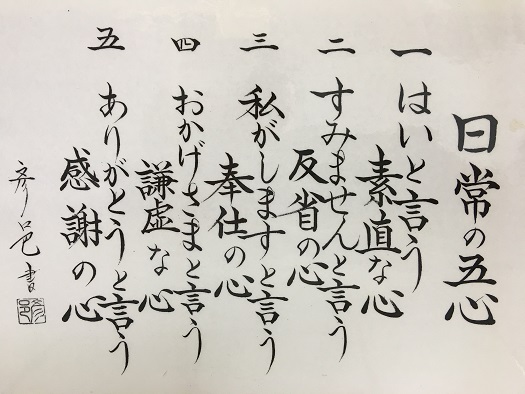 日常の五心
一 はいと言う
素直な心
二 すみませんと言う
反省の心
三 私がしますと言う
奉仕の心
四 おかげさまと言う
謙虚な心
五 ありがとうと言う
感謝の心
彦邑書